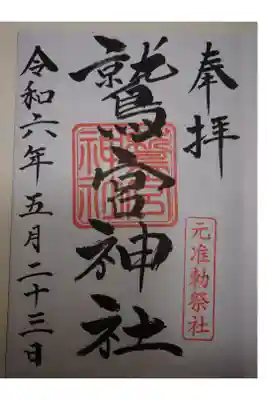 奉拝
元准勅祭社
鷲宮神社
令和六年五月二十三日